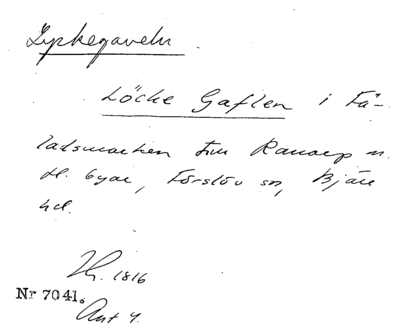 Lyckegaveln
Löcke Gaflen i Fä-
ladsmarken till Ranarp m.
fl. byar, Förslöv sn, Bjäre
hd.
1816
Nr 7041.
Akt 4.